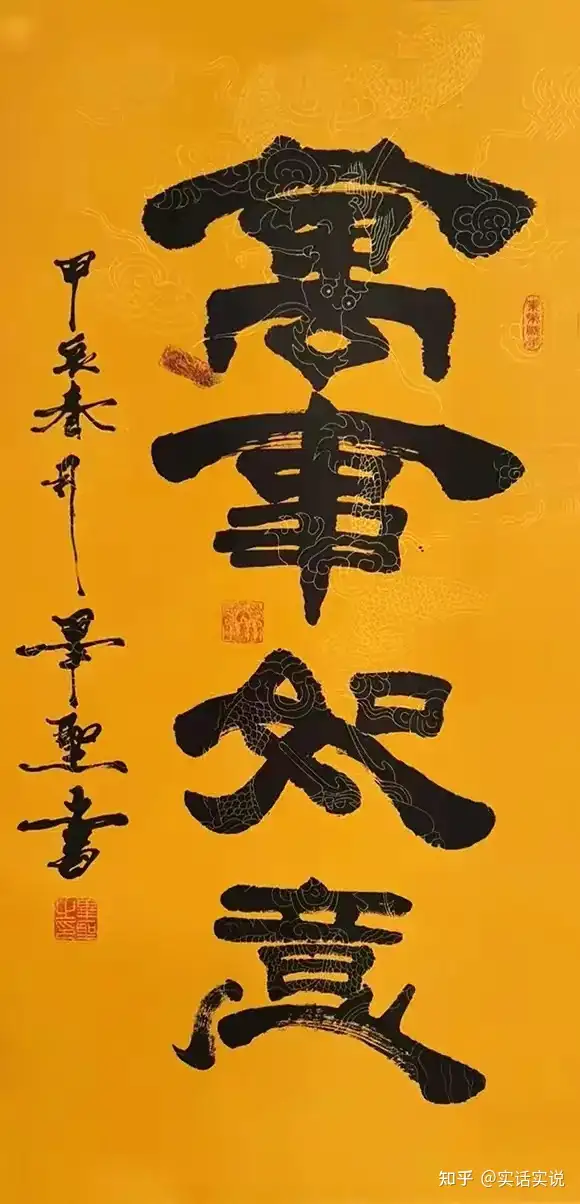 萬事如意
甲辰春月畢聖書
知乎 @实话实说